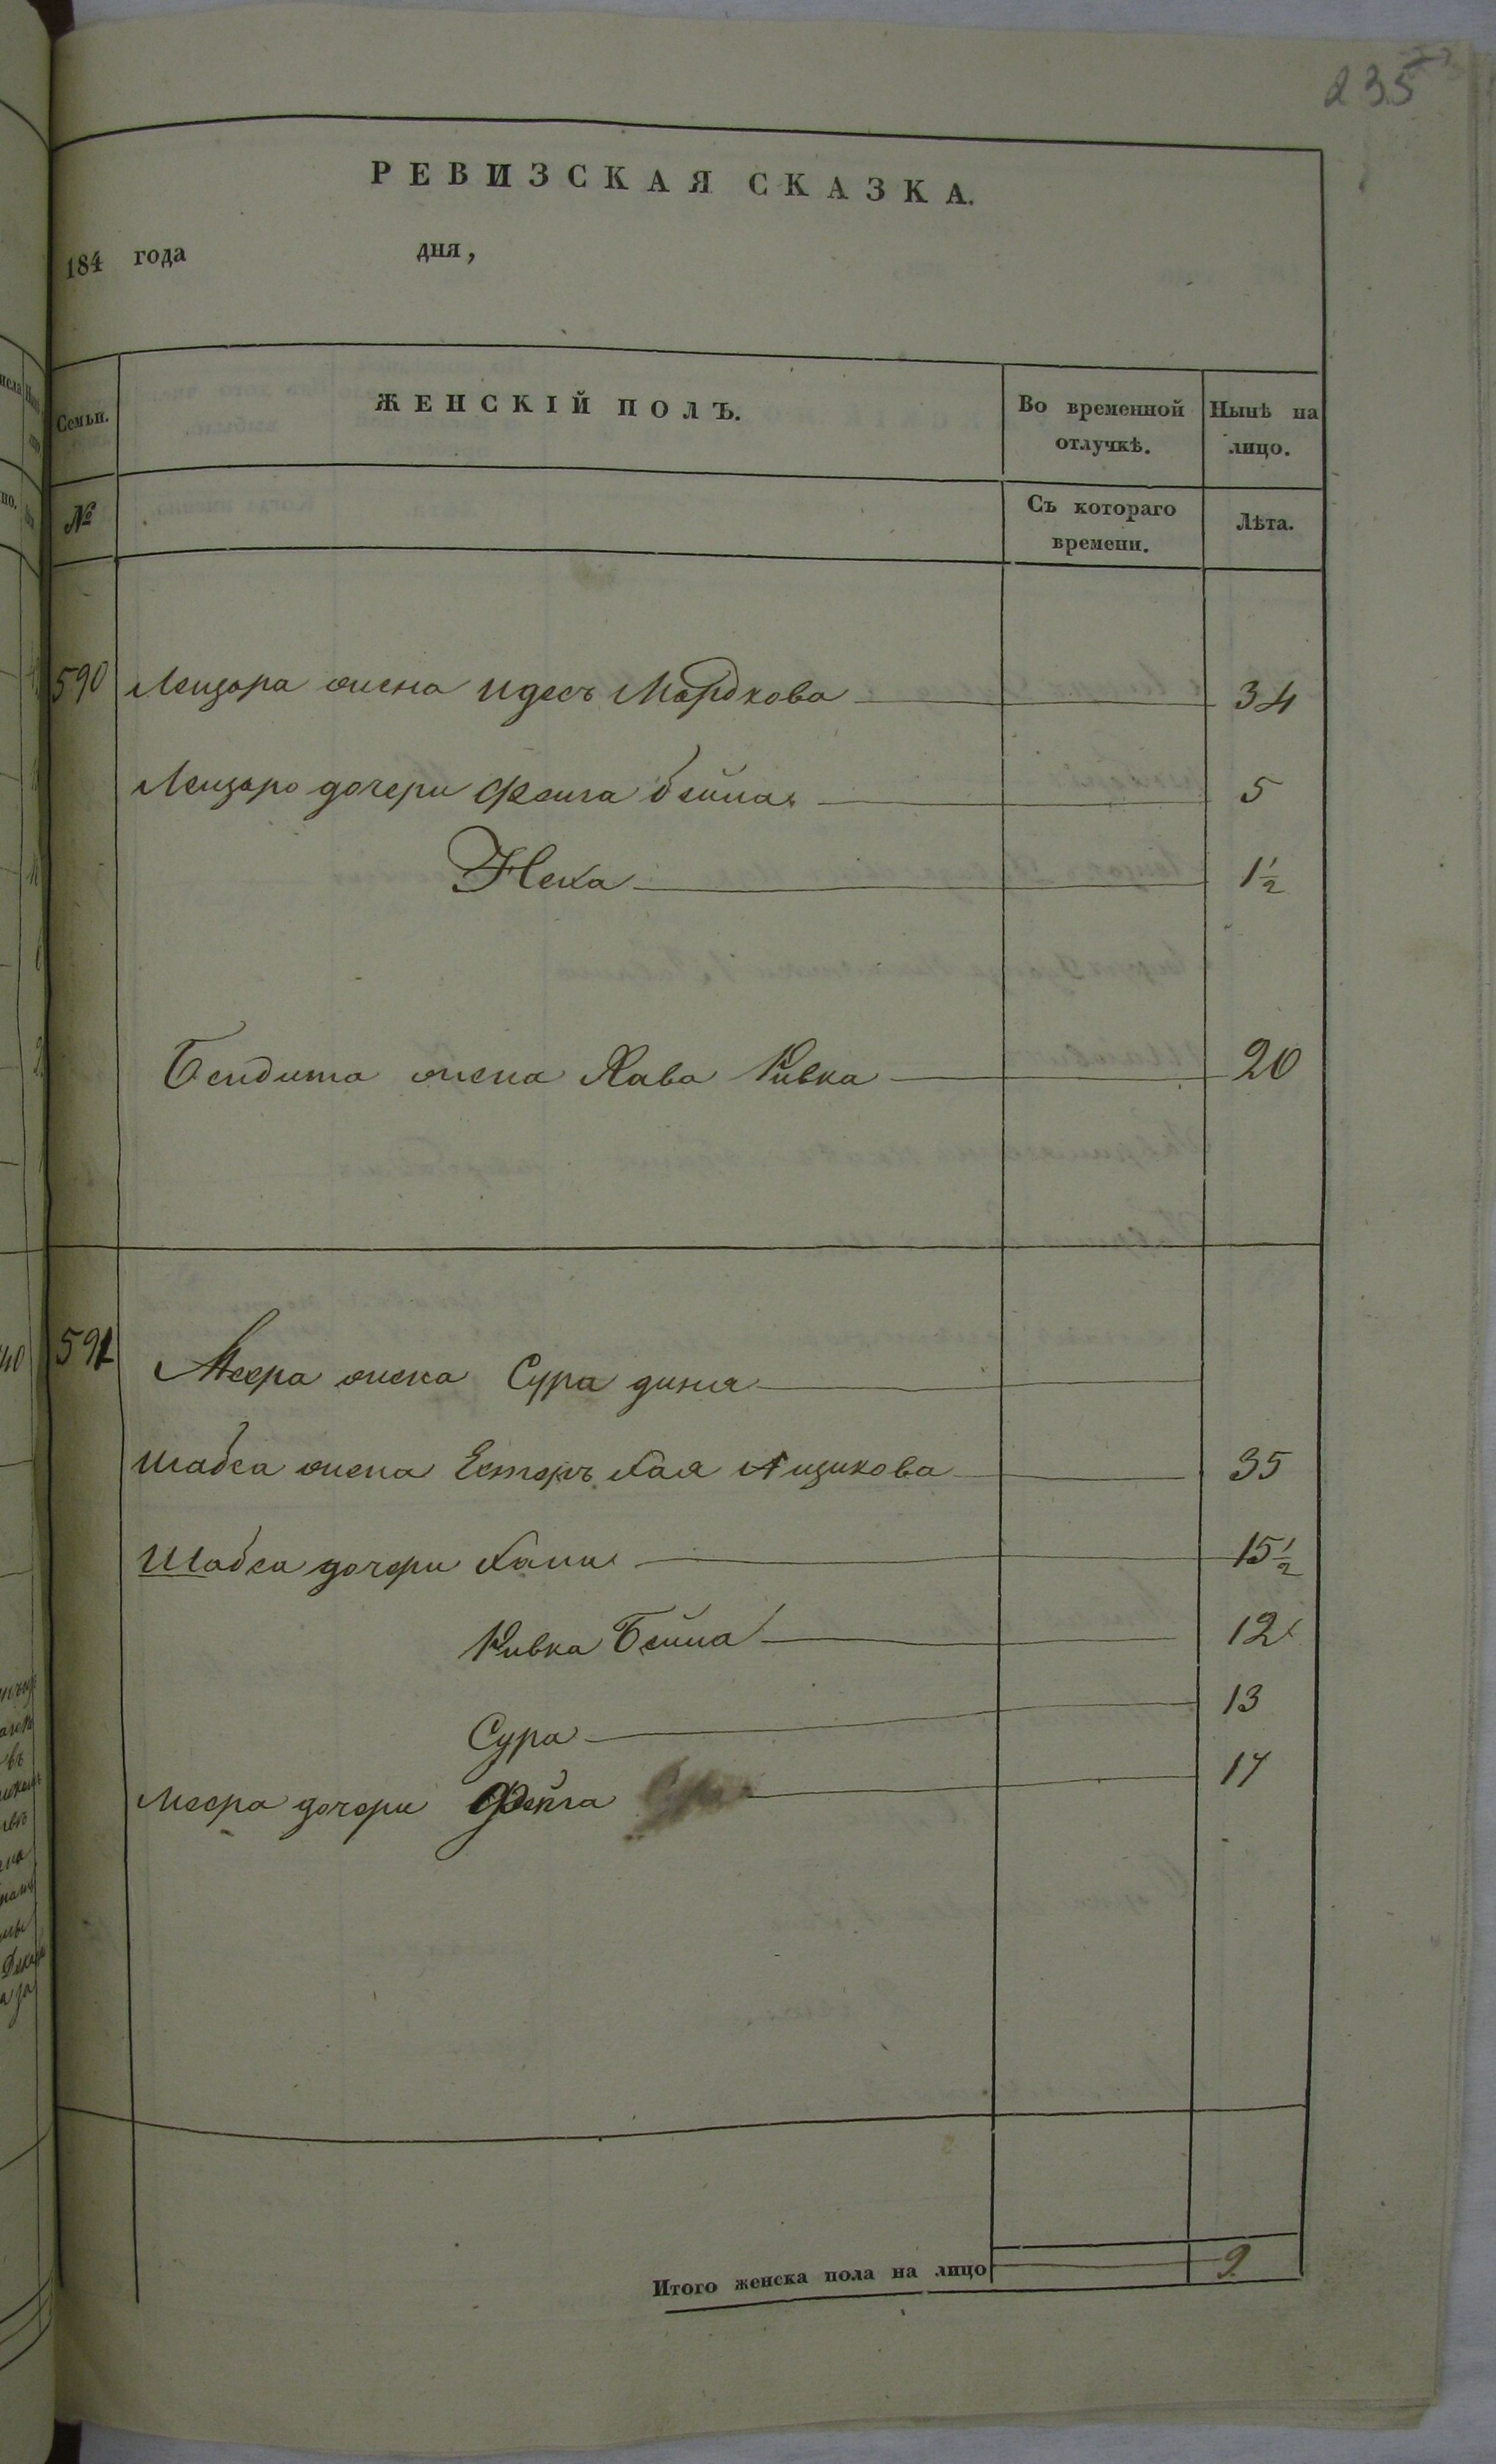 235
РЕВИЗСКАЯ СКАЗКА.
184 года дня,
Семьи. ЖЕНСКІЙ ПОЛЪ. Во временной отлучкѣ. Нынѣ на лицо.
№ Съ котораго времени. Лѣта.
590 Лейзора жена Идесъ Мордкова 34
Лейзора дочери Фейга Бейла 5
Неха 1 1/2
Бендита жена Хава Ривка 20
591 Меера жена Сура
Шабса жена Естеръ Хая Айзикова 35
Шабса дочери 15 1/2
Ривка Бейла 12
Сура 13
Меера дочери Фейга 17
Итого женска пола на лицо 9